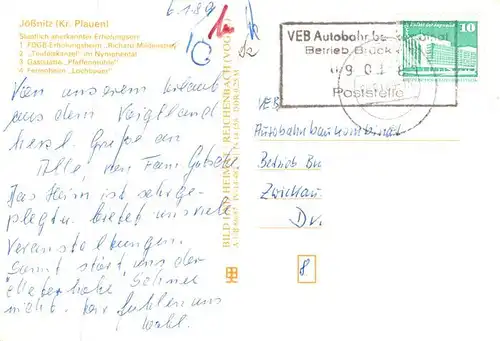 Jößnitz (Kr. Plauen)
Staatlich anerkannter Erholungsort
1 FDGB-Erholungsheim „Richard Mildenstrey“
2 „Teufelskanzel“ im Nymphental
3 Gaststätte „Pfaffenmühle“
4 Ferienheim „Lochbauer“
6.1.89
Von unserem Urlaub
aus dem Vogtland
herzl. Grüße an
Alle, den Fam. Gutsche
Das Heim ist sehr ge-
pflegt u. bietet uns viele
Veranstaltungen.
Somit stört uns der
meterhohe Schnee
nicht. Wir fühlen uns
wohl.
BILD UND HEIMAT REICHENBACH (VOGTL)
VEB Autobahnbaukombinat
Betrieb Brück
Poststelle
10
VEB
Autobahnbaukombinat
Betrieb
Zwickau